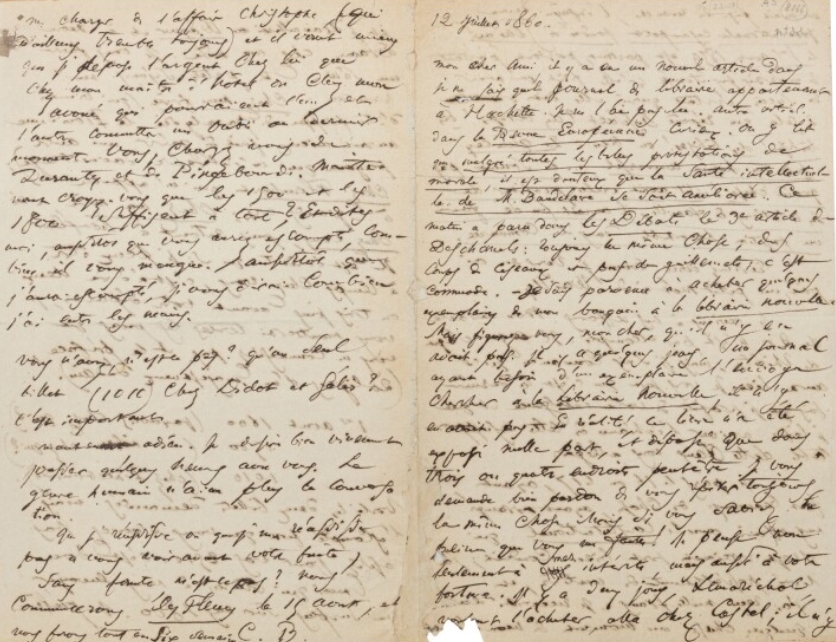 me charger de l'affaire Christophe (qui
d'ailleurs tremble toujours) et il vaut mieux
que je dépose l'argent chez lui que
chez mon maître d'hôtel ou chez mon
avoué qui pourraient l'un et
l'autre commettre un oubli ou
moment. Vous chargez-vous de
Duranty et de Pincebourde. Maintenant
croyez-vous que les 1500 et les
1800 suffisent à tout?
moi, aussitôt que vous aurez escompté, com-
bien il vous manque. Aussitôt que
j'aurai escompté, j'aurai combien
j'ai entre les mains.
Vous n'avez, n'est-ce pas? qu'un seul
billet (1010) chez Didot et Gélis?
C'est important.
adieu. Je désire bien vivement
passer quelques heures avec vous. Le
genre humain n'aime plus la conversa
tion.
Que je réussisse ou que je ne réussisse
pas à vous voir avant votre fuite,
Sans faute n'est-ce pas? nous
Commencerons les Fleurs le 15 août, et
nous ferons tout en six semaines C. B.
12 Juillet 1860.
mon cher ami il y a eu un nouvel article dans
je ne sais quel journal de librairie appartenant
à Hachette. Je ne l'ai pas lu. autre article
dans la Revue Européenne curieux. On y lit
que malgré toutes les belles protestations de
morale, il est douteux que la santé intellectuel
le de M. Baudelaire se soit améliorée. Ce
matin a paru dans les Débats le 3e article de
Deschanel; toujours la même chose; des
coups de ciseaux et puis des guillemets; c'est
commode. Je suis parvenu à acheter quelques
exemplaires de mon bouquin à la librairie nouvelle
Mais figurez-vous, mon cher, qu'il n'y en
avait pas. Il y a quelques jours un journal
ayant besoin d'un exemplaire l'envoie
chercher à la Librairie Nouvelle, il n'y
en avait pas. En réalité ce livre n'a été
exposé nulle part, et déposé que dans
trois ou quatre endroits peut-être. Je vous
demande bien pardon de vous répéter toujours
la même chose. Mais si vous saviez le
que vous me faites! Je pense non
seulement à mes intérêts mais aussi à votre
fortune. Il y a dix jours Lemaréchal
voulant l'acheter alla chez Castel; il n'y